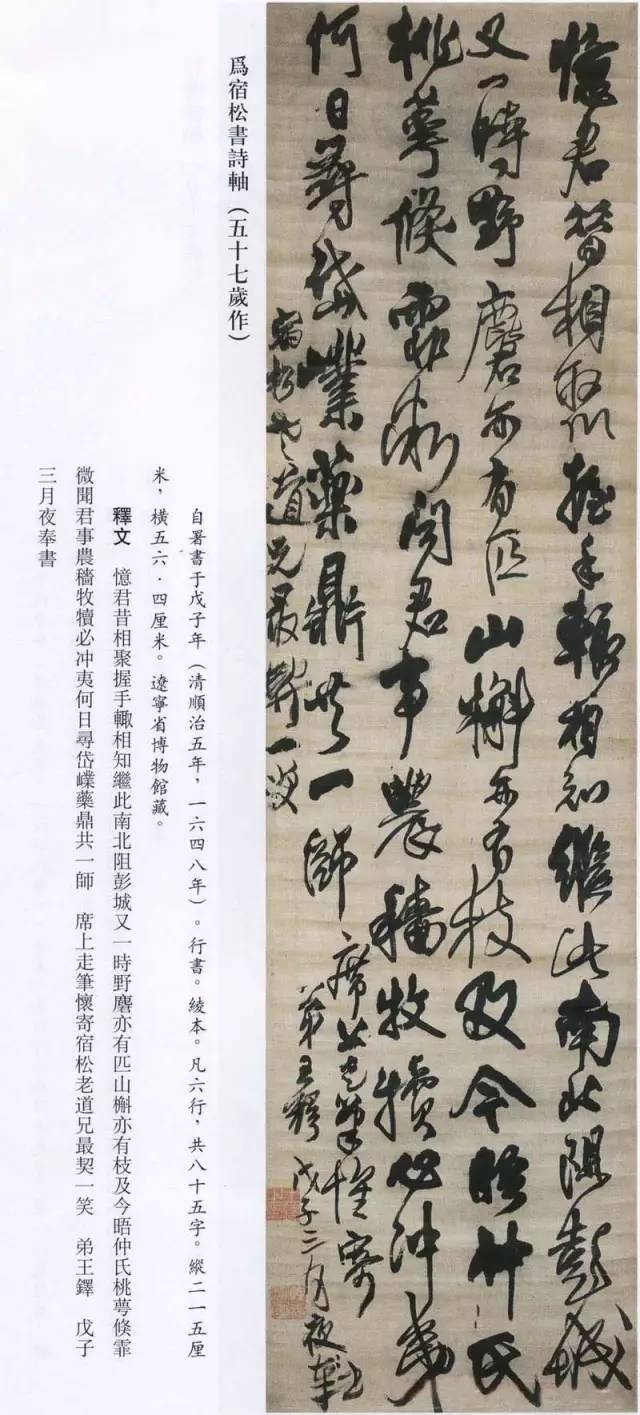 憶君昔相聚握手輒相知繼此南北阻彭城
又一時野麏亦有匹山槲亦有枝及今晤仲氏
桃萼倏霏微聞君事農穡牧犢必冲夷
何日尋岱嶫藥鼎共一師 席上走筆懷寄
宿松老道兄最契一笑
弟王鐸 戊子三月夜奉書
爲宿松書詩軸（五十七歲作）
自署書于戊子年（清順治五年，一六四八年）。行書。綾本。凡六行，共八十五字。縱二一五厘
米，橫五六·四厘米。遼寧省博物館藏。
釋文 憶君昔相聚握手輒相知繼此南北阻彭城又一時野麏亦有匹山槲亦有枝及今晤仲氏桃萼倏霏
微聞君事農穡牧犢必冲夷何日尋岱嶫藥鼎共一師 席上走筆懷寄宿松老道兄最契一笑 弟王鐸 戊子
三月夜奉書